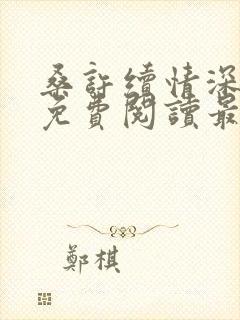 桑許續情深
免費閱讀最
鄭棋